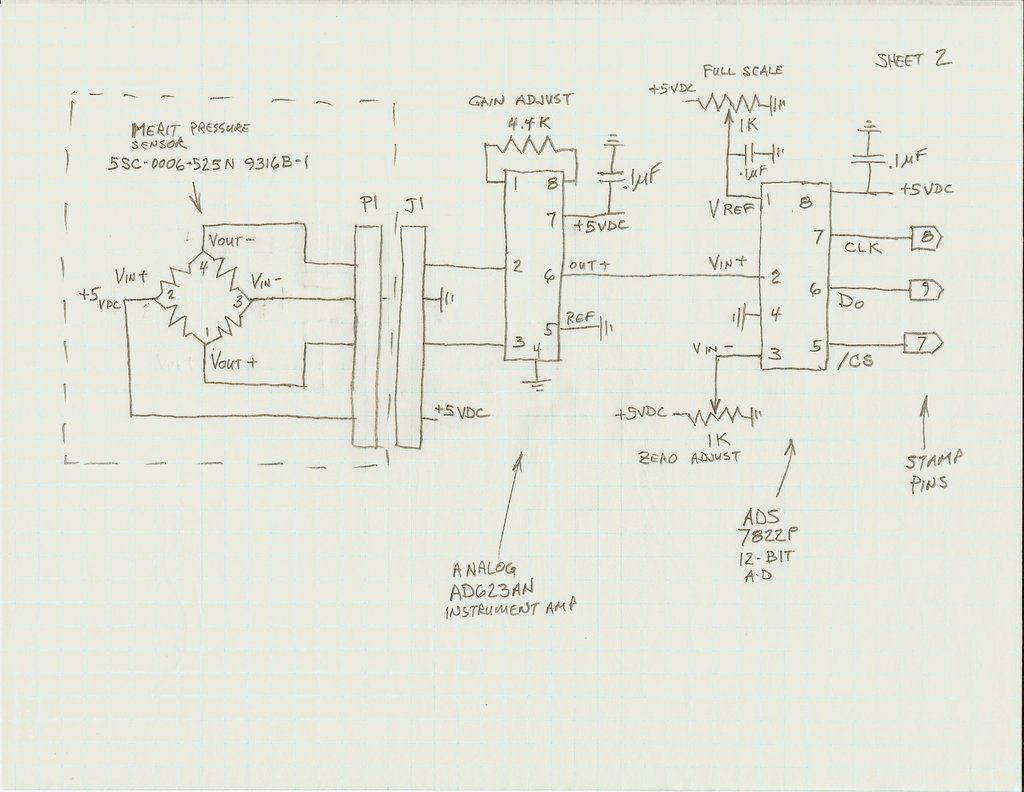 SHEET 2
FULL SCALE
+5VDC
1K
.1µF
GAIN ADJUST
4.4K
.1µF
+5VDC
.1µF
+5VDC
MERIT PRESSURE
SENSOR
5SC-0006-525N 9316B-1
P1
J1
VOUT-
4
VIN+
2
VIN-
3
+5VDC
1
VOUT+
+5VDC
1
8
7
2
6
OUT+
5
REF
3
4
VREF
1
8
7
CLK
8
VIN+
2
6
DO
9
4
VIN-
3
5
/CS
7
+5VDC
1K
ZERO ADJUST
STAMP
PINS
ADS
7822P
12-BIT
A-D
ANALOG
AD623AN
INSTRUMENT AMP